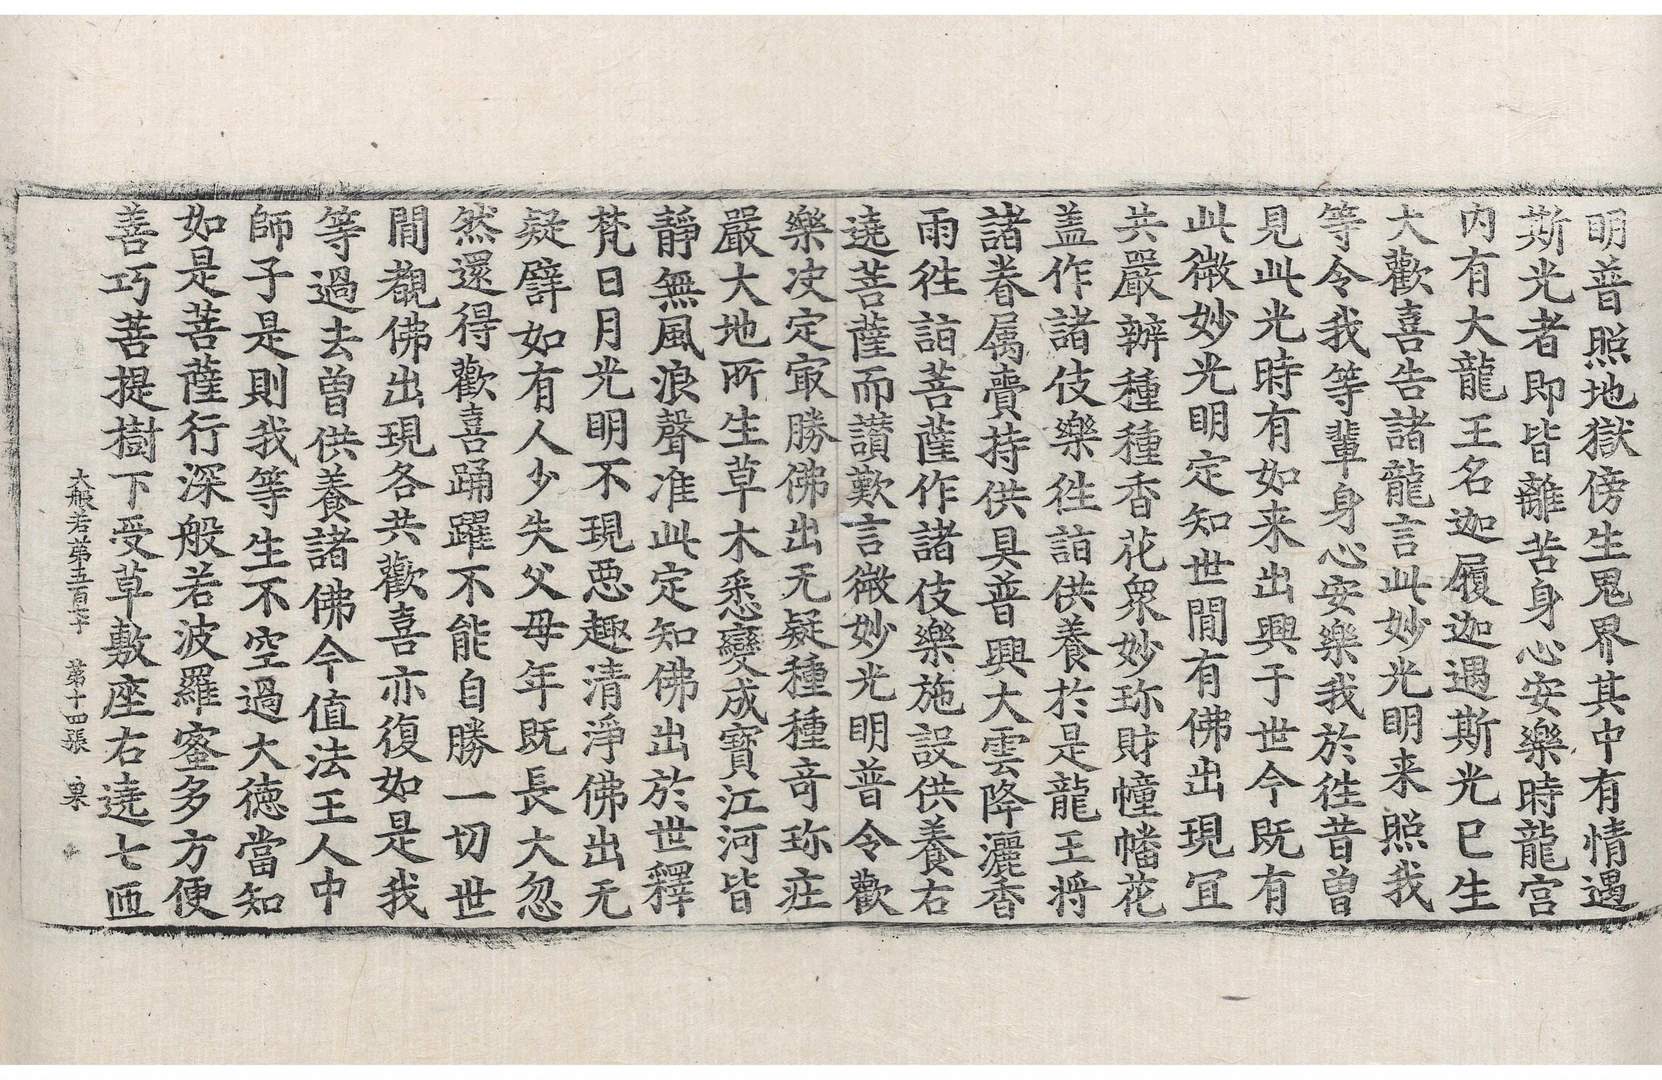 明普照地獄傍生鬼界其中有情遇
斯光者即皆離苦身心安樂時龍宮
内有大龍王名迦履迦遇斯光已生
大歡喜告諸龍言此妙光明来照我
等令我等輩身心安樂我於徃昔曽
見此光時有如来出興于世今既有
此微妙光明定知世間有佛出現冝
共嚴辦種種香花衆妙珎財幢幡花
盖作諸伎樂徃詣供養於是龍王将
諸眷属賷持供具普興大雲降灑香
雨徃詣菩薩作諸伎樂施設供養右
遶菩薩而讃歎言微妙光明普令歡
樂决定㝡勝佛出无疑種種竒珎庄
嚴大地所生草木悉變成寳江河皆
静無風浪聲准此定知佛出於世釋
梵日月光明不現惡趣清淨佛出无
疑譬如有人少失父母年既長大忽
然還得歡喜踊躍不能自勝一切世
間覩佛出現各共歡喜亦復如是我
等過去曽供養諸佛今值法王人中
師子是則我等生不空過大徳當知
如是菩薩行深般若波羅蜜多方便
善巧菩提樹下受草敷座右遶七匝
大般若第五百六十 第十四張 杲